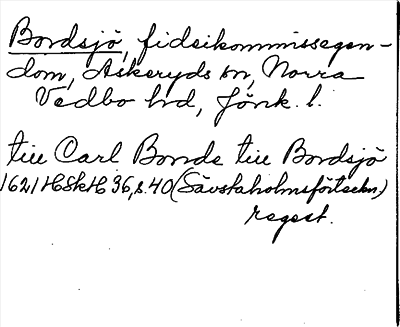 Bordsjö, fideikommissegen-
dom, Askeryds sn, Norra
Vedbo hd, Jönk. l.
till Carl Bonde till Bordsjö
1621 HSkH 36, s. 40 (Sävstaholmsförteckn.)
regest.